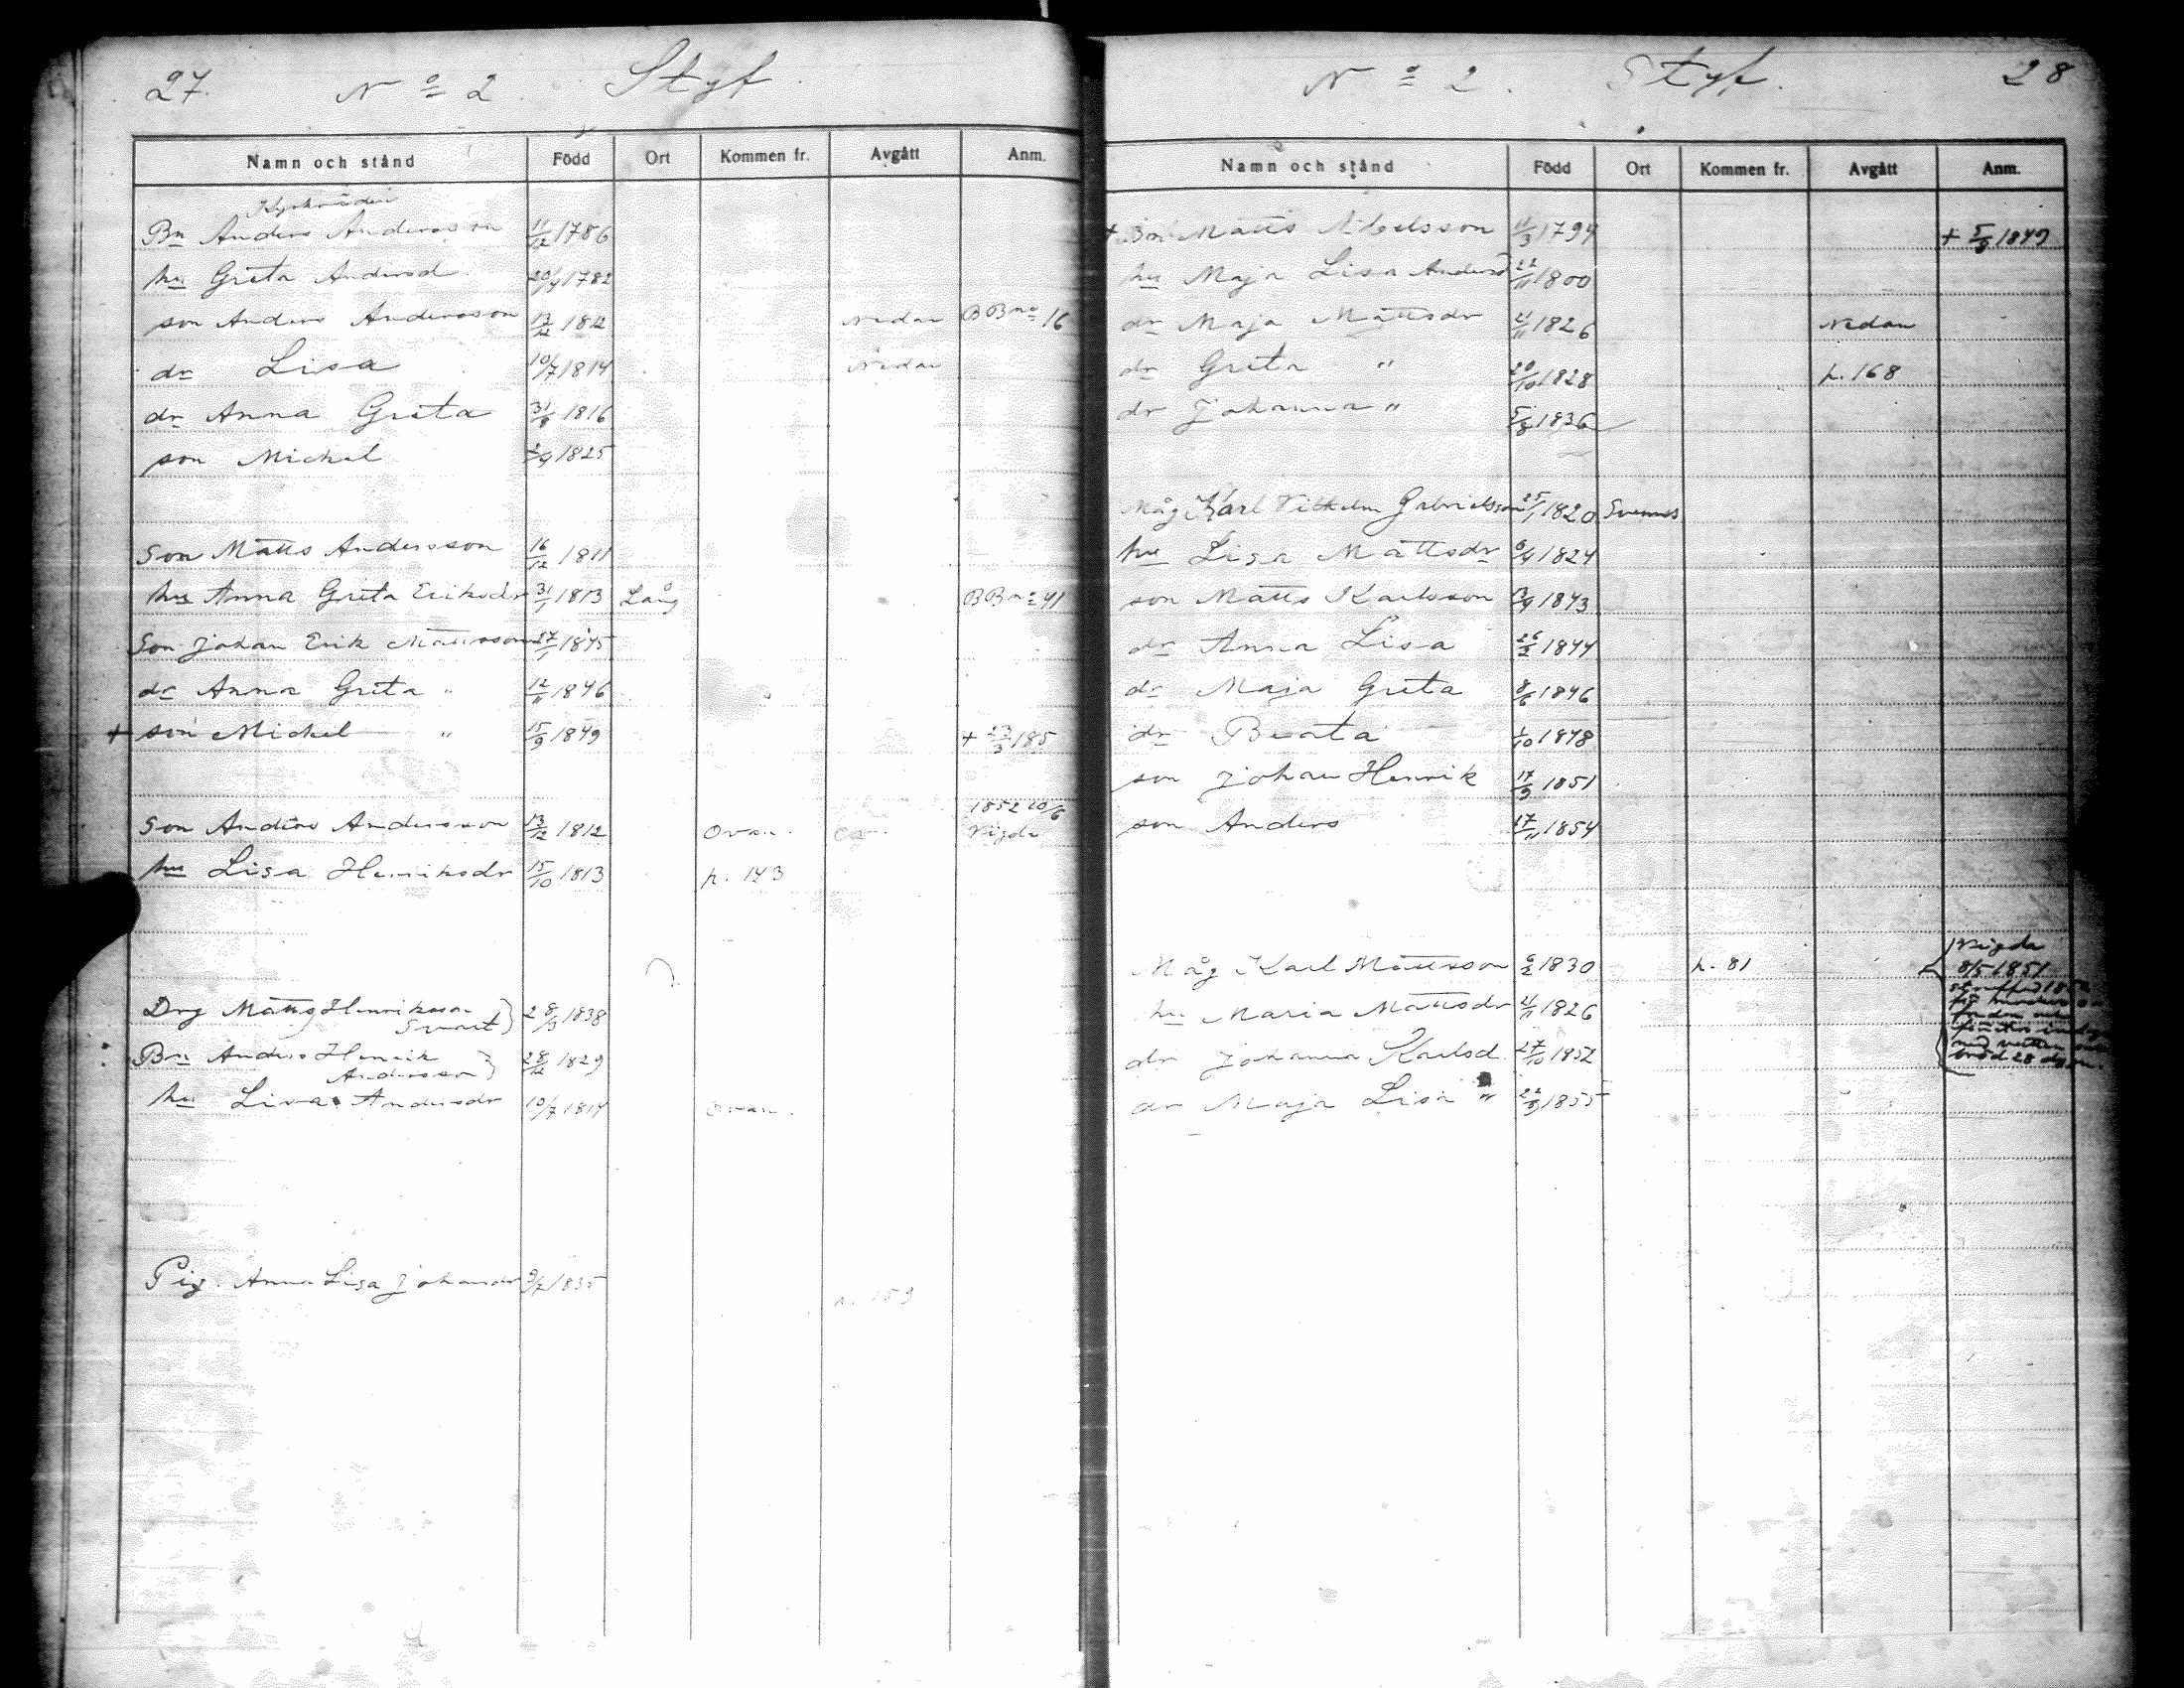 27. No 2. Styf
Namn och stånd Född Ort Kommen fr. Avgått Anm.
Bn Anders Andersson 11/12 1786
hu Greta Andersd 20/4 1782
son Anders Andersson 13/12 1812 Nedan BBno 16
dr Lisa 10/7 1814 Nedan
dr Anna Greta 31/8 1816
son Michel 1825
Son Matts Andersson 16/12 1811
hu Anna Greta Eriksdr 31/1 1813 Lång BBno 41
Son Johan Erik Mattsson 27/1 1845
dr Anna Greta " 12/11 1846
+ son Michel " 15/9 1849 + 23/3 185
1852 20/6
Son Anders Andersson 13/12 1812 Ovan. Vigda
hu Lisa Henriksdr 15/10 1813 p. 143
Drg Matts Henriksson
Svart } 28/3 1838
Bn Anders Henrik
Andersson } 28/12 1829
hu Lisa Andersdr 10/7 1814 Ovan.
Pig. Anna Lisa Johansdr 1835
p. 159
No 2. Styf. 28
Namn och stånd Född Ort Kommen fr. Avgått Anm.
+ Bn Matts Abelsson 11/3 1794 + 1849
hu Maja Lisa Andersd 22/11 1800
dr Maja Mattsdr 21/11 1826 Nedan
dr Greta " 20/10 1828 p. 168
dr Johanna " 5/8 1836
Måg Karl Vilhelm Gabrielsson 25/1 1820 Svennas
hu Lisa Mattsdr 6/4 1824
son Matts Karlsson 1843
dr Anna Lisa 26/2 1844
dr Maja Greta 8/6 1846
dr Beata 1/10 1848
son Johan Henrik 17/9 1851
son Anders 17/11 1854
Vigda
Måg Karl Mattsson 6/2 1830 p. 81 8/5 1851
hu Maria Mattsdr 21/11 1826
dr Johanna Karlsd. 27/10 1852
med vatten
bröd 28 dygn.
dr Maja Lisa " 22/9 1855